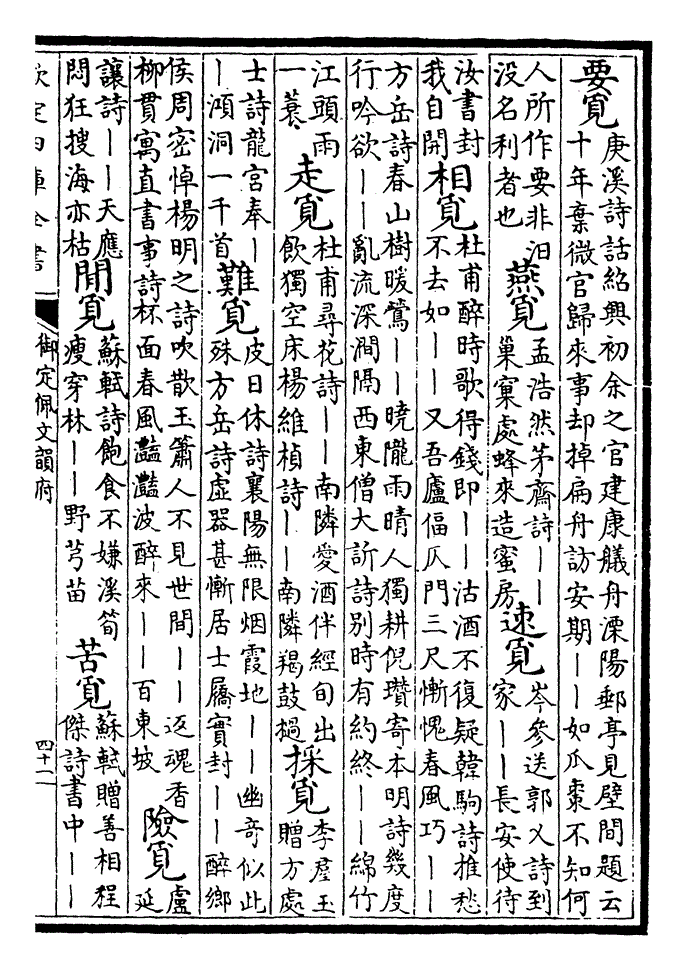 要覓
庚溪詩話紹興初余之官建康艤舟溧陽郵亭見壁間題云
十年棄微官歸來事却掉扁舟訪安期丨丨如瓜棗不知何
人所作要非汨
没名利者也
燕覓
孟浩然茅齋詩丨丨
巢窠處蜂來造蜜房
速覓
岑參送郭乂詩到
家丨丨長安使待
汝書封
我自開
相覓
杜甫醉時歌得錢即丨丨沽酒不復疑韓駒詩推愁
不去如丨丨又吾廬偪仄門三尺慚愧春風巧丨丨
方岳詩春山樹暖鶯丨丨曉隴雨晴人獨耕倪瓚寄本明詩幾度
行吟欲丨丨亂流深澗隔西東僧大訢詩别時有約終丨丨綿竹
江頭雨
一蓑
走覓
杜甫尋花詩丨丨南隣愛酒伴經旬出
飲獨空床楊維楨詩丨丨南隣羯鼓檛
採覓
李羣玉
贈方處
士詩龍宮奉丨
丨澒洞一千首
難覓
皮日休詩襄陽無限烟霞地丨丨幽奇似此
殊方岳詩虛器甚慚居士屩實封丨丨醉鄉
侯周密悼楊明之詩吹散玉簫人不見世間丨丨返魂香
柳貫寓直書事詩杯面春風豔豔波醉來丨丨百東坡
險覓
盧
延
讓詩丨丨天應
悶狂搜海亦枯
閒覓
蘇軾詩飽食不嫌溪筍
瘦穿林丨丨野芎苗
苦覓
蘇軾贈善相程
傑詩書中丨丨
欽定四庫全書
御定佩文韻府
四十一